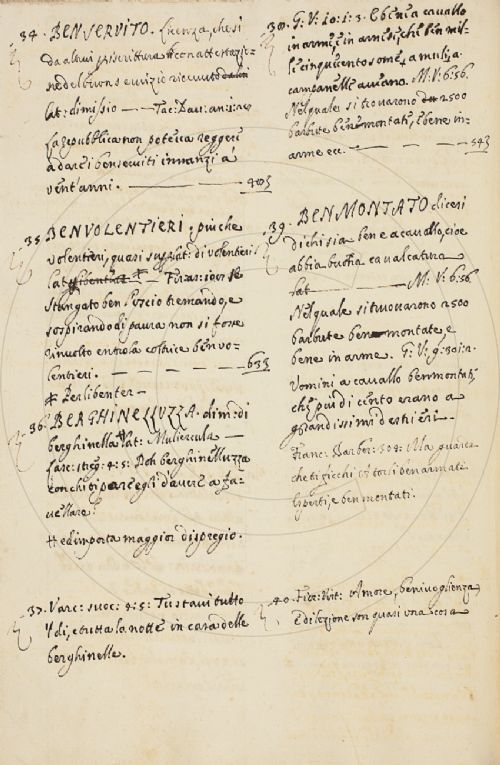 34. BENSERVITO. Licenza, che si
da altrui per iscrittura con attestazio-
ne del buon servizio ricevuto
lat: dimissio — Tac: Dav: an: 1:
La repubblica non poteva reggere
a dare i benserviti innanzi a'
vent'anni.
35. BENVOLENTIERI: più che
volentieri, quasi superlat: di volentieri
lat. — Firenz:
Stangato ben l'uscio tremando, e
sospirando di paura non si fosse
rinvolto entro la coltrice benvo-
lentieri. 633
# Perlibenter —
36. BERGHINELLUZZA. dim: di
berghinella # lat: Muliercula —
Varc: suoc: 4: 5: Doh berghinelluzza
con chi ti par egli d'avere a fa-
vellare?
# ed importa maggior dispregio.
37. Varc: suoc: 4: 5: Tu stavi tutto
'l dì, e tutta la notte in casa delle
berghinelle.
38. G: V: 10: 1: 3. E bene a cavallo
in arme, e in arnesi, che ben mil-
le cinquecento some a muli, a
campanelle aviano. M: V: 6: 56.
Nel quale si trovarono 2500
barbute benmontati, e bene in
arme ecc. 543
39. BENMONTATO dicesi
di chi sia bene a cavallo, cioe
abbia buona cavalcatura
lat — M: V: 6: 56.
Nel quale si trovarono 2500
barbute benmontate, e
bene in arme. G: V: 9: 301: 1.
Uomini a cavallo benmontati,
che più di cento erano a
grandissimi destrieri —
Franc: Barber: Ma guarda
che ti ficchi benarmati
Esperti, e benmontati.
40. Fior: Virt: Amore, benivoglienza,
E dilezione son quasi una cosa